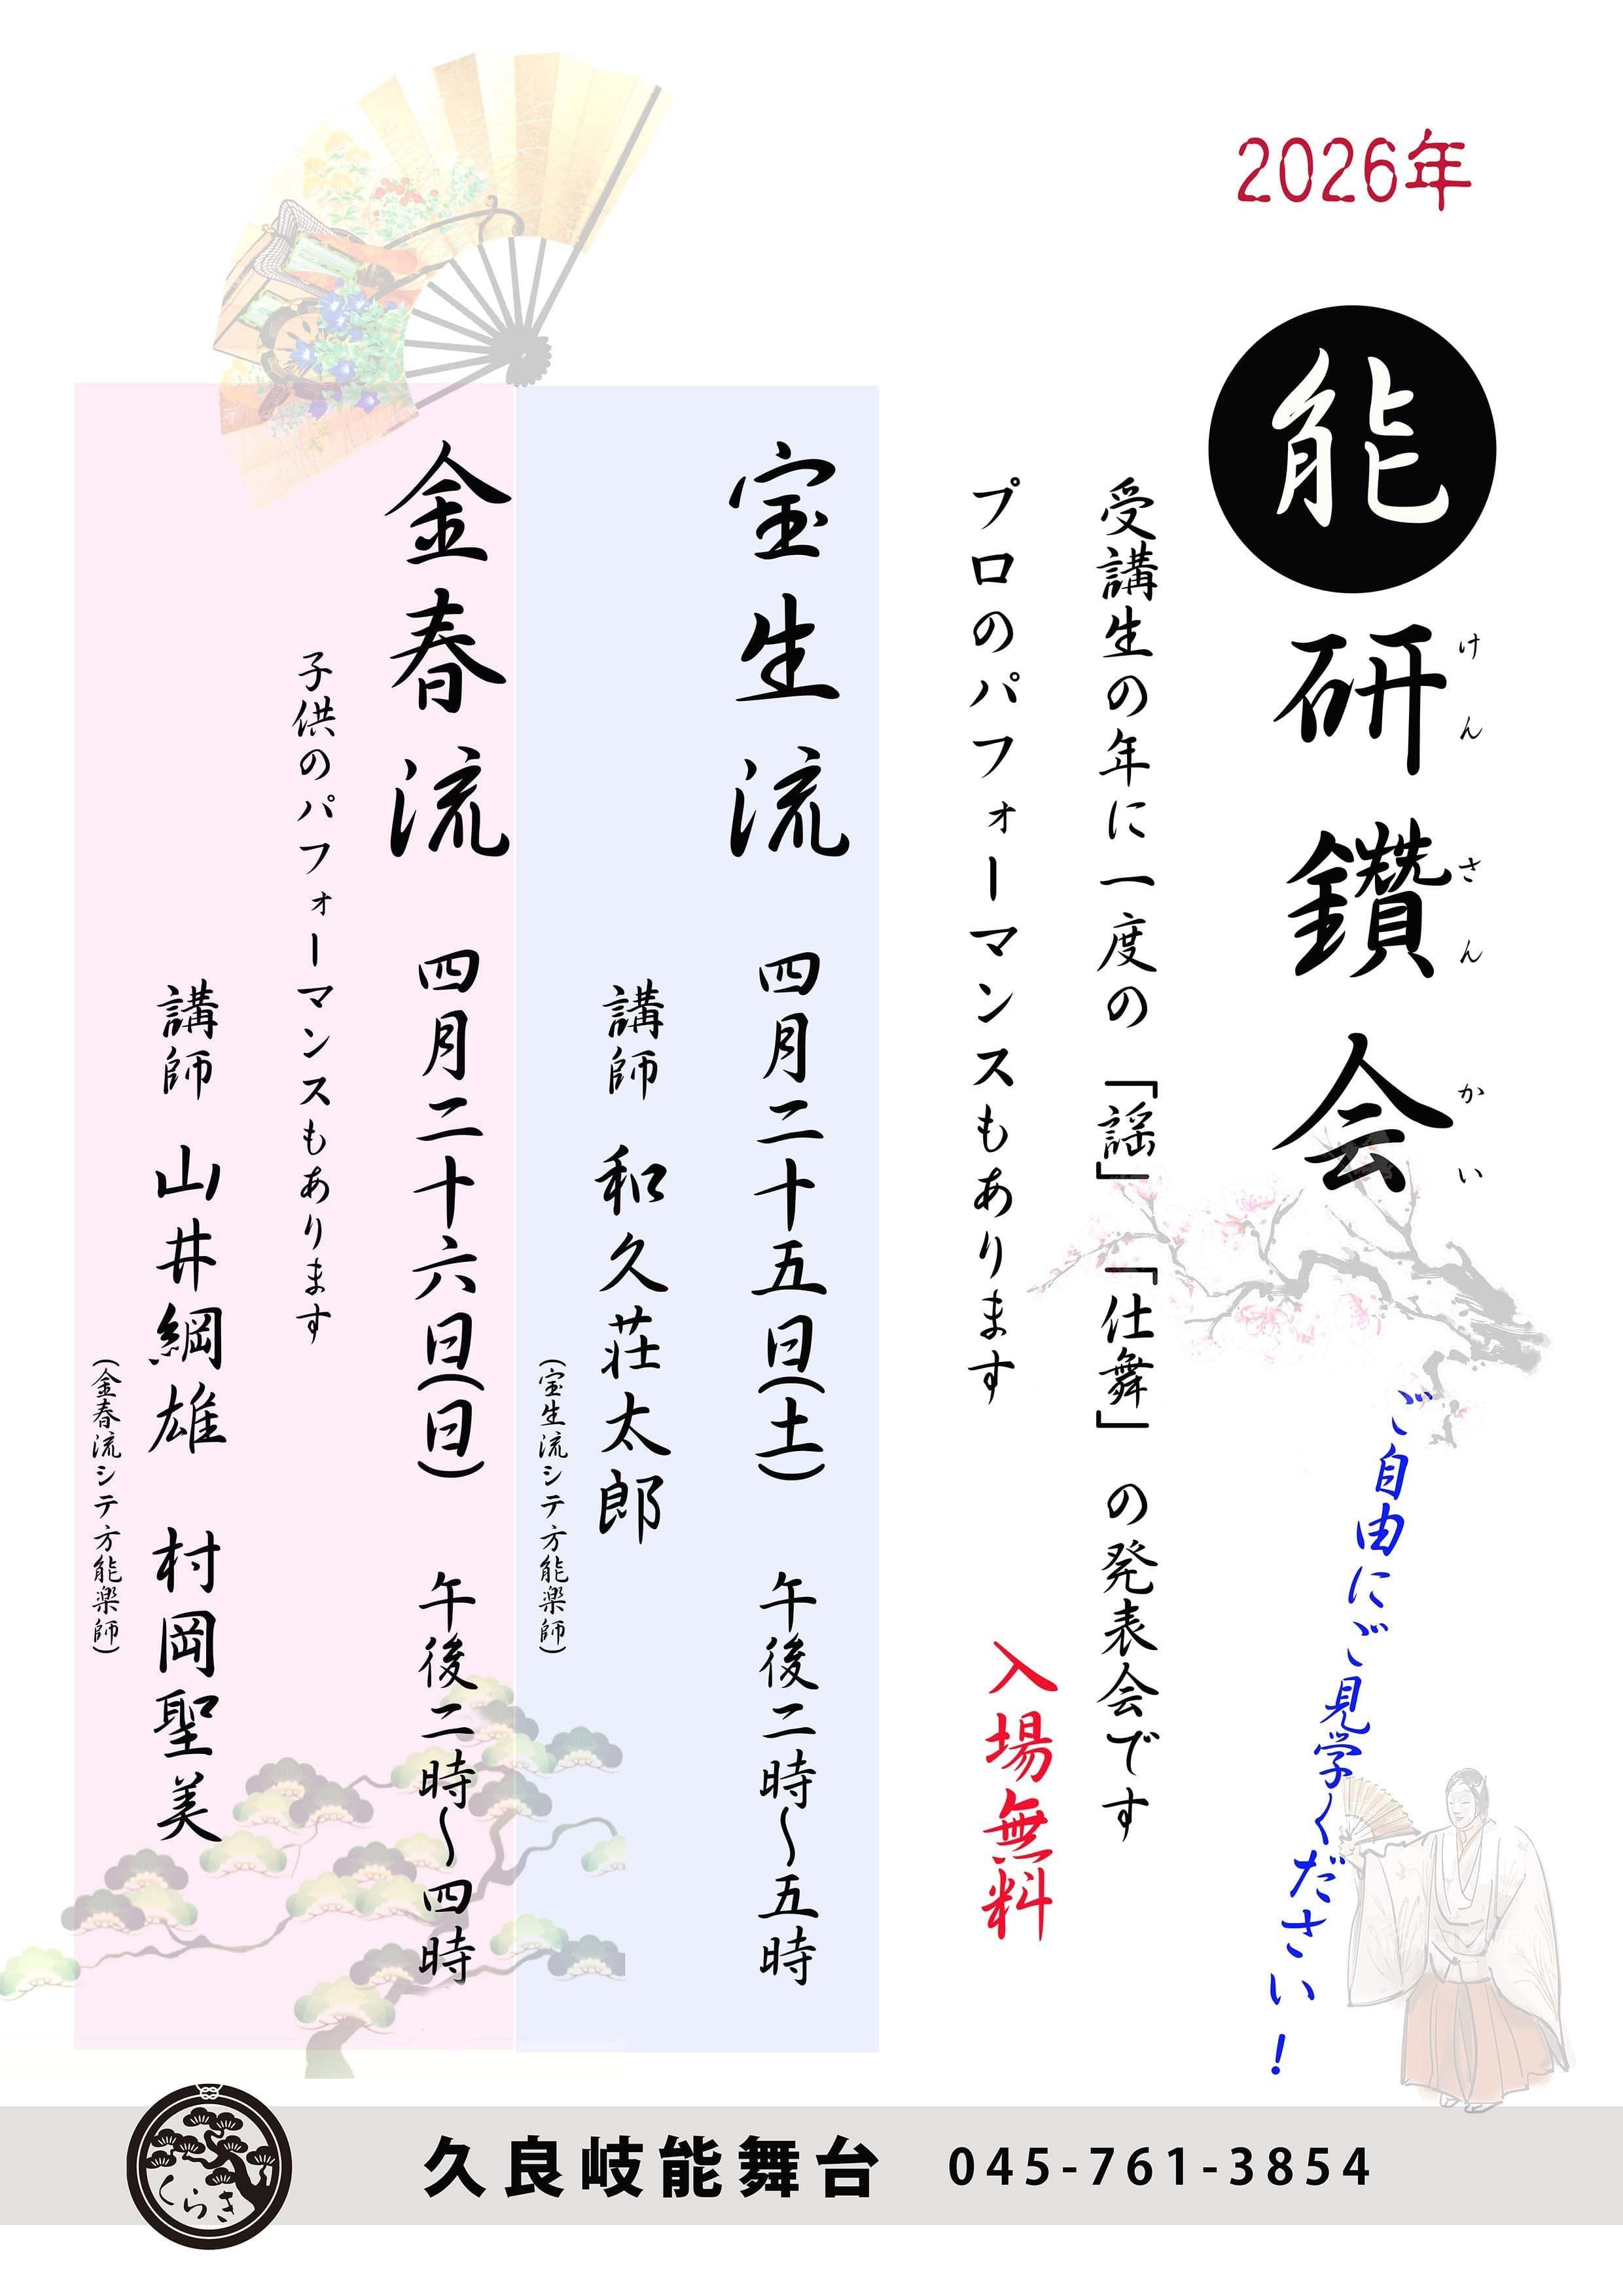 2026年
能研鑽会
けんさんかい
ご自由にご見学ください!
受講生の年に一度の「謡」「仕舞」の発表会です
プロのパフォーマンスもあります
入場無料
宝生流 四月二十五日(土) 午後二時~五時
講師 和久荘太郎
(宝生流シテ方能楽師)
金春流 四月二十六日(日) 午後二時~四時
子供のパフォーマンスもあります
講師 山井綱雄 村岡聖美
(金春流シテ方能楽師)
くらき
久良岐能舞台 045-761-3854